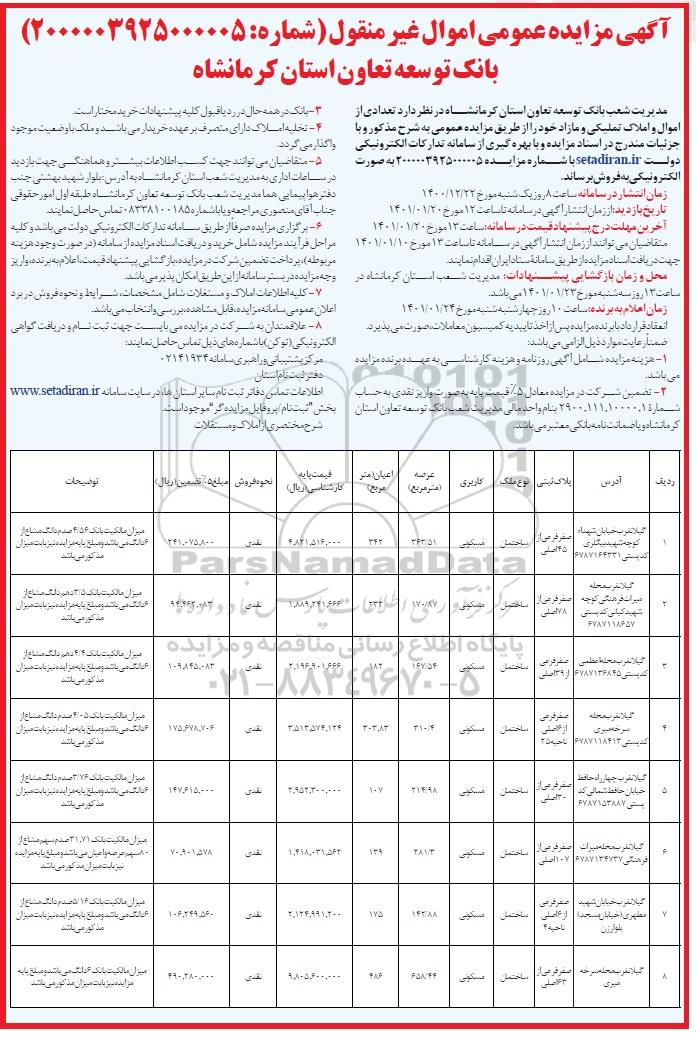 آگهی مزایده عمومی اموال غیر منقول (شماره: ۲۰۰۰۰۰۳۹۲۵۰۰۰۰۰۵)
بانک توسعه تعاون استان کرمانشاه
مدیریت شعب بانک توسعه تعاون استان کرمانشاه در نظر دارد تعدادی از
اموال و املاک تملیکی و مازاد خود را از طریق مزایده عمومی به شرح مذکور و با
جزئیات مندرج در اسناد مزایده و با بهره گیری از سامانه تدارکات الکترونیکی
دولت setadiran.ir با شماره مزایده ۲۰۰۰۰۰۳۹۲۵۰۰۰۰۰۵ به صورت
الکترونیکی به فروش برساند.
زمان انتشار در سامانه ساعت ۸ روز یک شنبه مورخ ۱۴۰۰/۱۲/۲۲
تاریخ بازدید: از زمان انتشار آگهی در سامانه تا ساعت ۱۲ مورخ ۱۴۰۱/۰۱/۲۰
آخرین مهلت درج پیشنهاد قیمت در سامانه: ساعت ۱۳ مورخ ۱۴۰۱/۰۱/۲۰
متقاضیان می توانند از زمان انتشار آگهی در سامانه تا ساعت ۱۳ مورخ ۱۴۰۱/۰۱/۱۰
جهت دریافت اسناد مزایده از طریق سامانه ستاد ایران اقدام نمایند.
محل و زمان بازگشایی پیشنهادات: مدیریت شعب استان کرمانشاه در
ساعت ۱۳ روز سه شنبه مورخ ۱۴۰۱/۰۱/۲۳ می باشد.
زمان اعلام به برنده: ساعت ۱۰ روز چهارشنبه شنبه مورخ ۱۴۰۱/۰۱/۲۴
انعقاد قرارداد با برنده مزایده پس از اخذ تاییدیه کمیسیون معاملات، صورت می پذیرد.
ضمناً رعایت موارد ذیل الزامی می باشد:
۱- هزینه مزایده شامل آگهی روزنامه و هزینه کارشناسی به عهده برنده مزایده
می باشد.
۲- تضمین شرکت در مزایده معادل ۵٪ قیمت پایه به صورت واریز نقدی به حساب
شماره ۲۹۰۰.۱۱۱.۱۰۰۰۰.۱ بنام واحد مالی مدیریت شعب بانک توسعه تعاون استان
کرمانشاه و یا ضمانت نامه بانکی معتبر می باشد.
۳- بانک در همه حال در رد یا قبول کلیه پیشنهادات خرید مختار است.
۴- تخلیه املاک دارای متصرف بر عهده خریدار می باشد و ملک با وضعیت موجود
واگذار می گردد.
۵- متقاضیان می توانند جهت کسب اطلاعات بیشتر و هماهنگی جهت بازدید
در ساعات اداری به مدیریت شعب استان کرمانشاه به آدرس: بلوار شهید بهشتی جنب
دفتر هواپیمایی هما مدیریت شعب بانک توسعه تعاون کرمانشاه طبقه اول امور حقوقی
جناب آقای منصوری مراجعه و یا با شماره ۰۸۳۳۸۱۰۰۱۸۵ تماس حاصل نمایند.
۶- برگزاری مزایده صرفا از طریق سامانه تدارکات الکترونیکی دولت می باشد و کلیه
مراحل فرآیند مزایده شامل خرید و دریافت اسناد مزایده از سامانه (در صورت وجود هزینه
مربوطه)، پرداخت تضمین شرکت در مزایده، بازگشایی پیشنهاد قیمت، اعلام به برنده، واریز
وجه مزایده در بستر سامانه از این طریق امکان پذیر می باشد.
۷- کلیه اطلاعات املاک و مستغلات شامل مشخصات، شرایط و نحوه فروش در برد
اعلان عمومی سامانه مزایده، قابل مشاهده، بررسی و انتخاب می باشد.
۸- علاقمندان به شرکت در مزایده می بایست جهت ثبت نام و دریافت گواهی
الکترونیکی (توکن) با شماره های ذیل تماس حاصل نمایند:
مرکز پشتیبانی و راهبری سامانه ۰۲۱۴۱۹۳۴
دفتر ثبت نام استان
اطلاعات تماس دفاتر ثبت نام سایر استان ها، در سایت سامانه www.setadiran.ir
بخش "ثبت نام / پروفایل مزایده گر" موجود است.
شرح مختصری از املاک و مستقلات
ردیف آدرس پلاک ثبتی نوع ملک کاربری عرصه (مترمربع) اعیان (متر مربع) قیمت پایه کارشناسی (ریال) نحوه فروش مبلغ ۵٪ تضمین (ریال) توضیحات
۱ گیلانغرب خیابان شهداء کوچه شهید بیگلری کدپستی ۶۷۸۷۱۶۴۳۳۱ صفر فرعی از ۴۵ اصلی ساختمان مسکونی ۳۶۳/۵۱ ۳۴۲ ۴,۸۲۱,۵۱۶,۰۰۰ نقدی ۲۴۱,۰۷۵,۸۰۰ میزان مالکیت بانک ۴/۵۶ صدم دانگ مشاع از ۶ دانگ می باشد و مبلغ پایه مزایده نیز بابت میزان مذکور می باشد
۲ گیلانغرب محله میراث فرهنگی کوچه شهید کیانی کدپستی ۶۷۸۷۱۱۸۶۵۷ صفر فرعی از ۷۸ اصلی ساختمان مسکونی ۱۷۰/۸۷ ۲۳۴ ۱,۸۸۹,۲۴۱,۶۶۶ نقدی ۹۴,۴۶۲,۰۸۳ میزان مالکیت بانک ۳/۵ دهم دانگ مشاع از ۶ دانگ می باشد و مبلغ پایه مزایده نیز بابت میزان مذکور می باشد
۳ گیلانغرب محله اعظمی کدپستی ۶۷۸۷۱۳۶۸۴۵ صفر فرعی از ۳۹ اصلی ساختمان مسکونی ۱۶۷/۵۴ ۱۸۲ ۲,۱۹۶,۹۰۱,۶۶۶ نقدی ۱۰۹,۸۴۵,۰۸۳ میزان مالکیت بانک ۴/۴ دهم دانگ مشاع از ۶ دانگ می باشد و مبلغ پایه مزایده نیز بابت میزان مذکور می باشد
۴ گیلانغرب محله سرخه میری کدپستی ۶۷۸۷۱۱۸۴۱۳ صفر فرعی از ۱۶ اصلی ناحیه ۲۵ ساختمان مسکونی ۳۱۰/۴ ۳۰۳.۸۳ ۳,۵۱۳,۵۷۴,۱۲۴ نقدی ۱۷۵,۶۷۸,۷۰۶ میزان مالکیت بانک ۴/۰۵ صدم دانگ مشاع از ۶ دانگ می باشد و مبلغ پایه مزایده نیز بابت میزان مذکور می باشد
۵ گیلانغرب چهارراه حافظ خیابان حافظ شمالی کد پستی ۶۷۸۷۱۵۳۸۸۷ صفر فرعی از ۳۰ اصلی ساختمان مسکونی ۲۱۴/۹۸ ۱۰۷ ۲,۹۵۲,۳۰۰,۰۰۰ نقدی ۱۴۷,۶۱۵,۰۰۰ میزان مالکیت بانک ۳/۷۶ صدم دانگ مشاع از ۶ دانگ می باشد و مبلغ پایه مزایده نیز بابت میزان مذکور می باشد
۶ گیلانغرب محله میراث فرهنگی ۶۷۸۷۱۳۴۷۳۷ صفر فرعی از ۱۰۷ اصلی ساختمان مسکونی ۲۸۱/۳ ۱۳۹ ۱,۴۱۸,۰۳۱,۵۶۲ نقدی ۷۰,۹۰۱,۵۷۸ میزان مالکیت بانک ۳۱.۷۱ صدم سهم مشاع از ۸۰ سهم عرصه و اعیان می باشد و مبلغ پایه مزایده نیز بابت میزان مذکور می باشد
۷ گیلانغرب خیابان شهید مطهری (خیابان مسجد) بلوار زن صفر فرعی از ۱۶ اصلی ناحیه ۴ ساختمان مسکونی ۱۴۲/۸۸ ۱۷۵ ۲,۱۲۴,۹۹۱,۲۰۰ نقدی ۱۰۶,۲۴۹,۵۶۰ میزان مالکیت بانک ۵/۱۶ صدم دانگ مشاع از ۶ دانگ می باشد و مبلغ پایه مزایده نیز بابت میزان مذکور می باشد
۸ گیلانغرب محله سرخه میری صفر فرعی از ۶۳ اصلی ساختمان مسکونی ۶۵۸/۴۴ ۴۸۶ ۹,۸۰۵,۶۰۰,۰۰۰ نقدی ۴۹۰,۲۸۰,۰۰۰ میزان مالکیت بانک ۶ دانگ می باشد و مبلغ پایه مزایده نیز بابت میزان مذکور می باشد
ParsNamadData
پایگاه اطلاع رسانی مناقصه و مزایده
۰۲۱-۸۸۳۴۹۶۷۰-۵